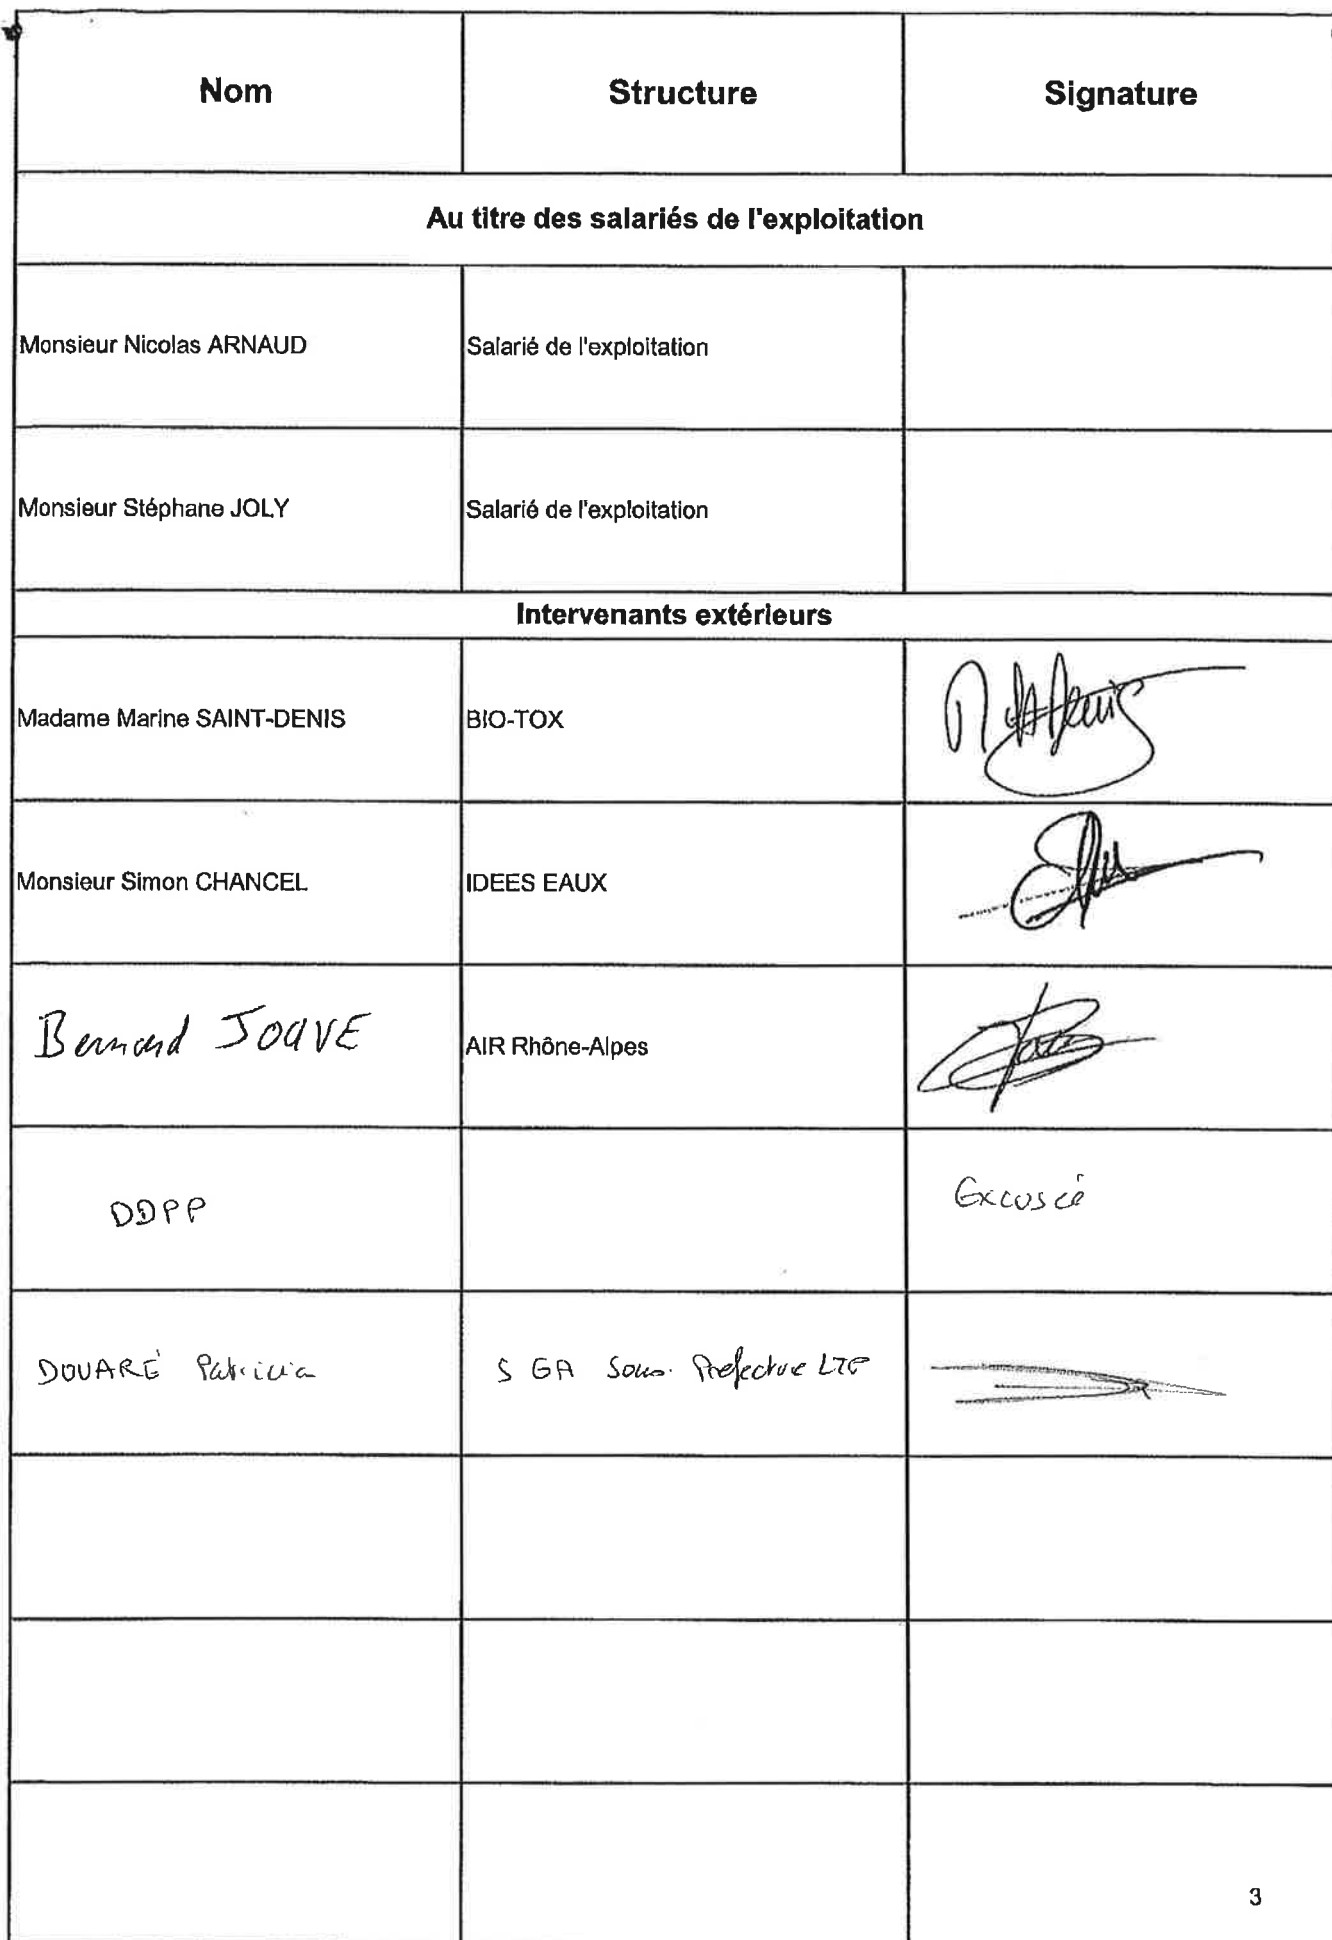 Nom Structure Signature
Au titre des salariés de l'exploitation
Monsieur Nicolas ARNAUD Salarié de l'exploitation
Monsieur Stéphane JOLY Salarié de l'exploitation
Intervenants extérieurs
Madame Marine SAINT-DENIS BIO-TOX
Monsieur Simon CHANCEL IDEES EAUX
Bernard JOUVE AIR Rhône-Alpes
DDPP Excusé
DOUARÉ Patricia S GA Sous Préfecture
3